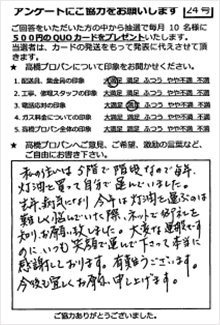 アンケートにご協力をお願いします 24号
ご回答をいただいた方の中から抽選で毎月10名様に
500円のQUOカードをプレゼントいたします。
当選者は、カードの発送をもって発表に代えさせて頂き
ます。
★ 高橋プロパンについて印象をお聞かせください。
1. 配送員、集金員の印象 大満足 満足 ふつう やや不満 不満
2. 工事、修理スタッフの印象 大満足 満足 ふつう やや不満 不満
3. 電話応対の印象 大満足 満足 ふつう やや不満 不満
4. ガス料金についての印象 大満足 満足 ふつう やや不満 不満
5. 高橋プロパン全体の印象 大満足 満足 ふつう やや不満 不満
★ 高橋プロパンへご意見、ご希望、激励の言葉など、
ご自由にお書き下さい。
私の住いは5階で階段なので毎年、
灯油を買って自分で運んでいました。
去年、病気になり今年は灯油を運ぶのは
難しく悩んでいけた際、ネットで
知りお願い致しました。大変な運搬です
のに、いつも笑顔で運んで下さって本当に
感謝しております。有難うございます。
今後も宜しくお願い申し上げます。
ご協力ありがとうございました。